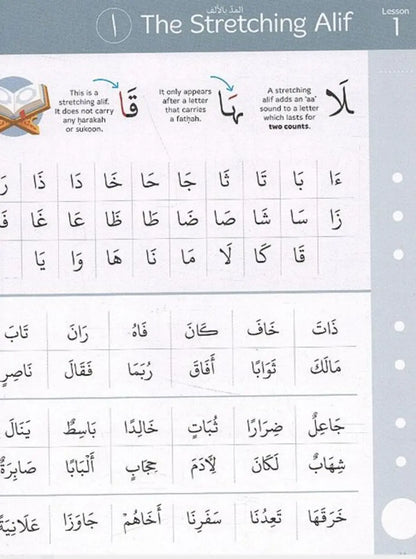 المدّ بالألف
١ The Stretching Alif
Lesson 1
لَا
A stretching alif adds an 'aa' sound to a letter which lasts for two counts.
هَا
It only appears after a letter that carries a fatḥah.
قَا
This is a stretching alif. It does not carry any ḥarakah or sukoon.
ءَا بَا تَا ثَا جَا حَا خَا دَا ذَا
زَا سَا شَا صَا ضَا طَا ظَا عَا غَا
قَا كَا لَا مَا نَا هَا وَا يَا
ذَاتَ خَافَ كَانَ فَاهُ رَانَ تَابَ
مَالَكَ ثَوَابًا أَفَاقَ رُبَمَا فَقَالَ نَاصِرٍ
جَاعِلٌ ضِرَارًا ثُبَاتٍ خَالِدًا بَاسِطٌ يَنَالَ
شِهَابٌ لَكَانَ لِأَدَمَ حِجَابٍ أَلْبَابًا صَابِرَةٌ
خَرَقَهَا تَعِدُنَا سَفَرِنَا أَخَاهُمْ جَاوَزَا عَلَانِيَةً